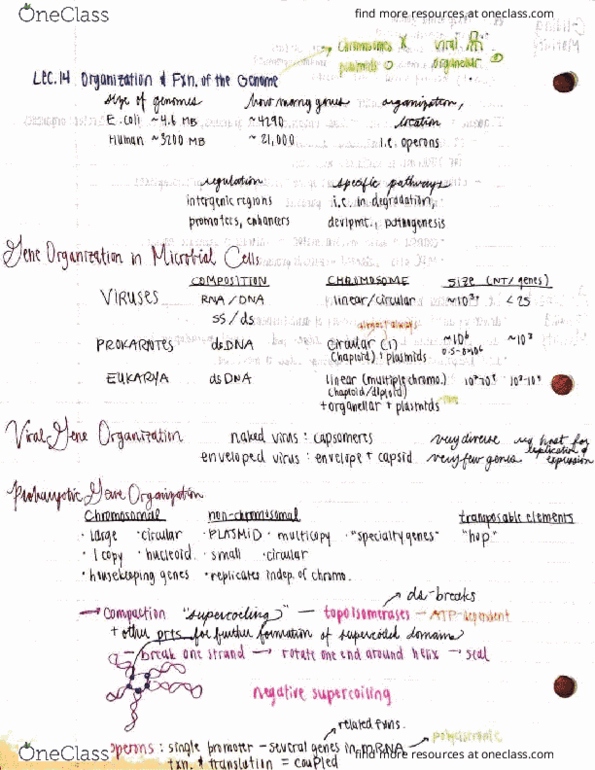 OneClass
find more resources at oneclass.com
chromosomes X viral
plasmids O organellar
Lec. 14 Organization & Fxn. of the Genome
size of genomes how many genes organization,
E. coli ~4.6 MB ~4290 location
Human ~3200 MB ~21,000 i.e. operons
regulation specific pathways
intergenic regions i.e. in degradation,
promoters, enhancers devlpmt., pathogenesis
Gene Organization in Microbial Cells
COMPOSITION CHROMOSOME SIZE (NT/genes)
VIRUSES RNA/DNA linear/circular <25
ss/ds
almost always
PROKARYOTES dsDNA circular (1)
(haploid) + plasmids
EUKARYA dsDNA linear (multiple chromo.)
(haploid/diploid)
+ organellar + plasmids
Viral Gene Organization naked virus: capsomers very diverse host for
enveloped virus: envelope + capsid very few genes replication &
expression
Prokaryotic Gene Organization
Chromosomal non-chromosomal transposable elements
· large · circular · PLASMID · multicopy · "specialty genes" "hop"
· 1 copy · nucleoid · small · circular
· housekeeping genes · replicates indep. of chromo.
ds-breaks
→ Compaction "supercoiling" — topoisomerases — ATP-dependent
+ other prts for further formation of supercoiled domains
break one strand → rotate one end around helix → seal
negative supercoiling
related fxns.
operons: single promoter – several genes in mRNA → polycistronic
txn. & translation = coupled
OneClass
find more resources at oneclass.com